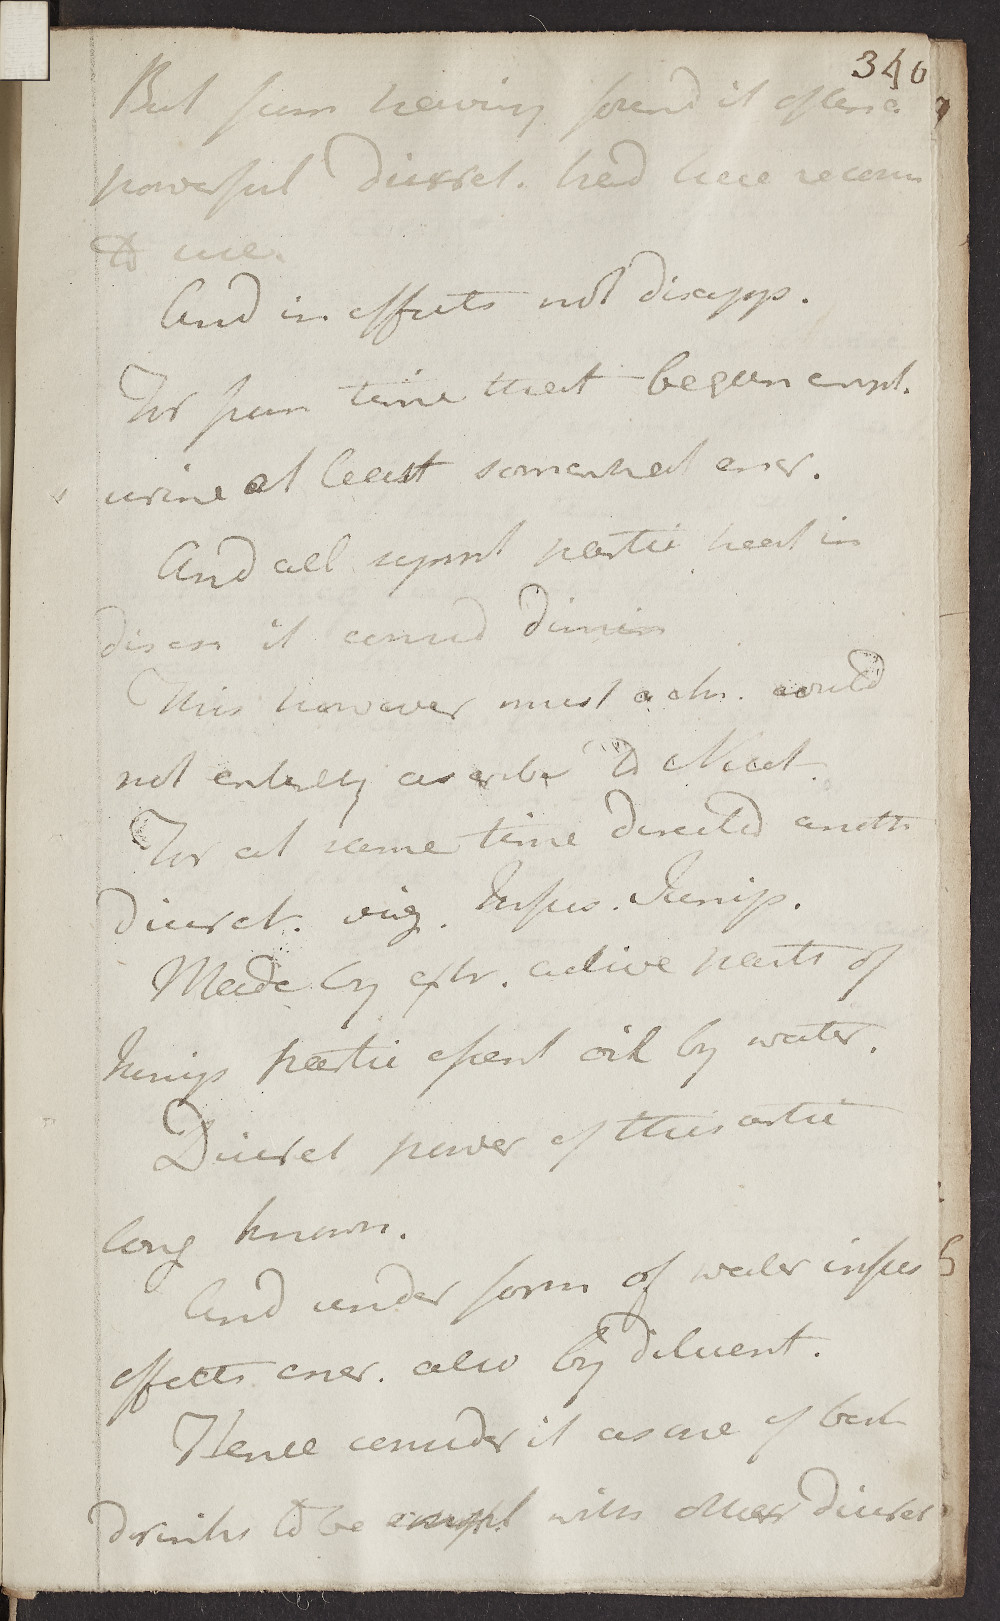 340
But from having found it often a
powerful Diuret. had here recour
to use.
And in effects not disapp.
For from time that began empl.
urine at least somewhat encr.
And all sympt partic heat in
diseas it consid Dimin
This however must ackn. could
not entirely ascribe to Nicot.
For at same time directed anoth
Diuret. viz. Infus. Junip.
Made by extr. active parts of
Junip partic essent oil by water.
Diuret power of this artic
long known.
And under form of water infus
effects encr. also by diluent.
Hence consider it as one of best
drinks to be empl with other Diuret